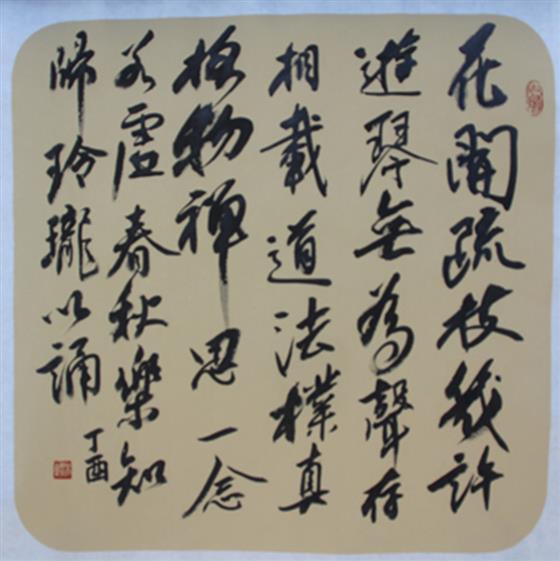 花開疏枝幾許
遊琴無為聲存
相載道法樸真
格物禪思一念
若虛春秋樂知
歸玲瓏以誦
丁酉